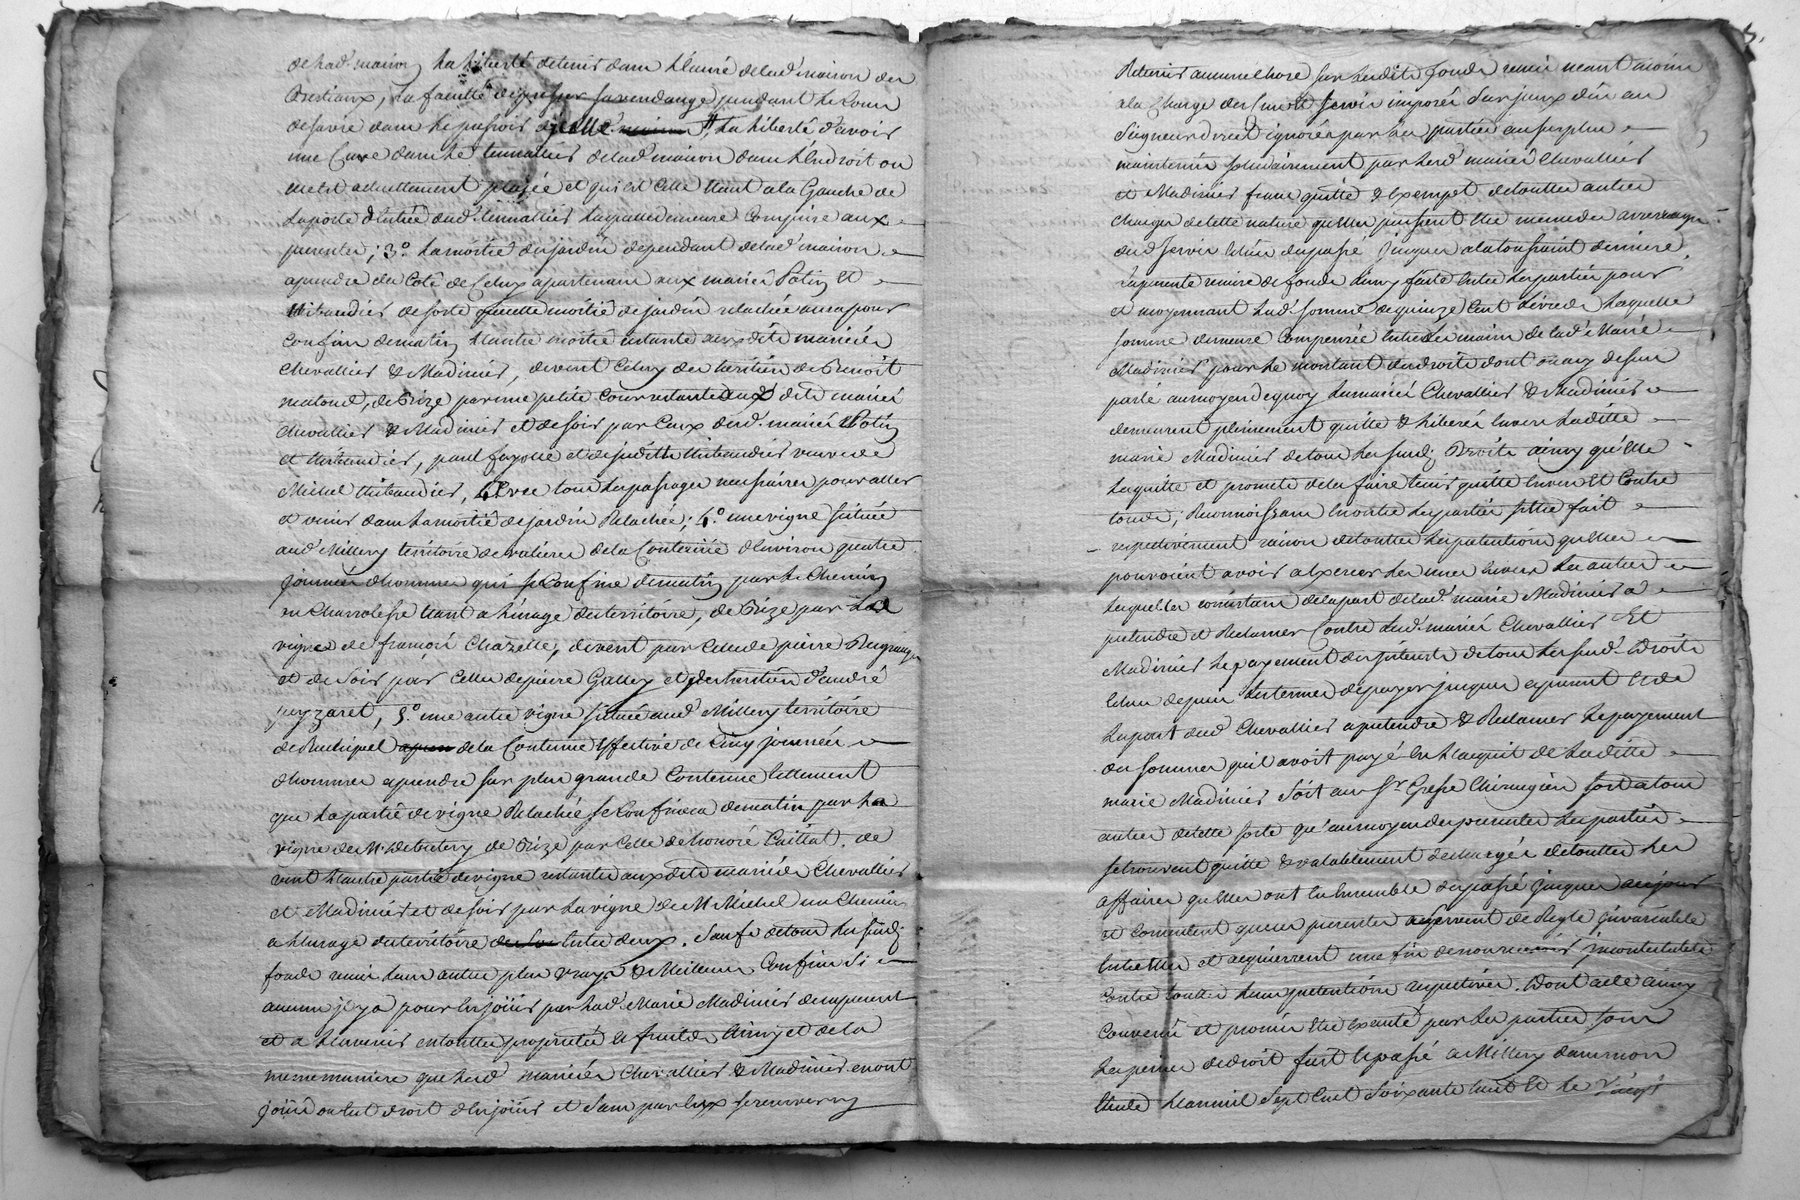 de lad. maison la liberté de tenir dans l'écurie de lad. maison des
Bestiaux, la faculté de presser sa vendange pendant le cours
de sa vie dans le pressoir de lad. la liberté d'avoir
une Cuve dans le tinnallier de lad. maison dans l'Endroit ou
elle est actuellement placée et qui est celle étant a la Gauche de
la porte d'Entrée dud. tinnallier laquelle demeure Comprise aux
presentes; 3.° la moitié du jardin dépendant de lad. maison
a prendre du Coté de Celuy apartenant aux mariés Potin Et
thibaudier de sorte que cette moitié de jardin relachée aura pour
Confin de matin l'autre moitié restante auxdits mariés
Chevallier & Madinier, de vent Celuy des héritiers de Benoit
matoud, de Bize par une petite Cour restante aux dits mariés
Chevallier & Madinier et de soir par Ceux desd. mariés Potin
et thibaudier, paul fayolle et de judith thibaudier veuve de
Michel thibaudier, Avec tous les passages nessaires pour aller
et venir dans la moitié de jardin Relachée; 4.° une vigne située
aud. Millery territoire de valieres de la Contenüe d'Environ quatre
journées d'hommes qui se Confine de matin par le Chemin
ou Charrolesse tant a l'usage du territoire, de Bize par la
vigne de françois Chazelle, de vent par Celle de pierre
et de Soir par Celles de pierre Gallay et des héritiers d'andré
puyzaret, 5.° une autre vigne située aud. Millery territoire
de la Contenue Effective de Cinq journées
d'hommes a prendre sur plus grande Contenue tellement
que la partie de vigne Relachée se Confinera de matin par la
vigne de Mr de de Bize par Celle de honoré Caillat, de
vent l'autre partie de vigne restantes aux dits mariés Chevallier
et Madinier et de soir par la vigne de Mr Michel un Chemin
a l'usage du territoire Entre deux. Sauf de tous les susd.
fonds unis leurs autres plus vrays & Meilleurs Confins Si
aucuns il y a pour En joüir par lad. Marie Madinier des a present
et a l'avenir en toutte propriété & fruits Ainsy et de la
meme maniere que lesd. mariés Chevallier & Madinier en ont
joüi ou Eut droit d'En joüir et Sans par Eux se reserver ny
Retenir aucune Chose sur lesdits fonds remis neant moins
a la Charge des Cens & Servis imposés Sur jceux düs au
Seigneur direct ignorés par les parties au surplus
maintenus solidairement par lesd. mariés Chevallier
et Madinier francs quitte & Exempt de touttes autres
Charges de telle nature qu'elles puissent Etre meme des arrerages
dud. Servis Echus du passé jusques a la toussaint derniere,
la presente remise de fonds Ainsy faite Entre les parties pour
et moyennant lad. somme de quinze Cent Livres de laquelle
somme demeure Compensée Entre les mains de lad. Marie
Madinier pour le montant des droits dont on a cy dessus
parlé au moyen de quoy les mariés Chevallier & Madinier
demeurent pleinement quitte & liberés Envers laditte
marie Madinier de tous les susd. Droits ainsy qu'Elle
les quitte et promet de les faire tenir quitte Envers Et Contre
tous; Reconnoissant En outre les parties s'Etre fait
respectivement raison de touttes les pretentions qu'Elles
pouvoient avoir a Exercer les unes Envers les autres
lesquelles consistant de la part de lad. marie Madinier a
pretendre et Reclamer Contre lesd. mariés Chevallier Et
Madinier le payement des jnterests de tous les susd. Droits
Echus depuis les termes de payer jusques a present & de
la part dud. Chevallier a pretendre & Reclamer le payement
des sommes qu'il avoit payé En l'acquit de laditte
marie Madinier Soit au Sr Chirurgien soit a tous
autres de telle sorte qu'au moyen des presentes les parties
se trouvent quitte & valablement dechargées de touttes les
affaires qu'elles ont Eu Ensemble du passé jusques aujour
et Consentent que ces presentes a servent de Regle jnvariable
Entr'elles et acquierrent une fin de nonrecevoir jncontestable
Contre touttes leurs pretentions respectives. Dont acte ainsy
Convenu et promis Etre Executé par les parties sous
les peines de droit fait & passé a Millery dans mon
Etude L'an mil Sept Cent Soixante huit Et le vingt